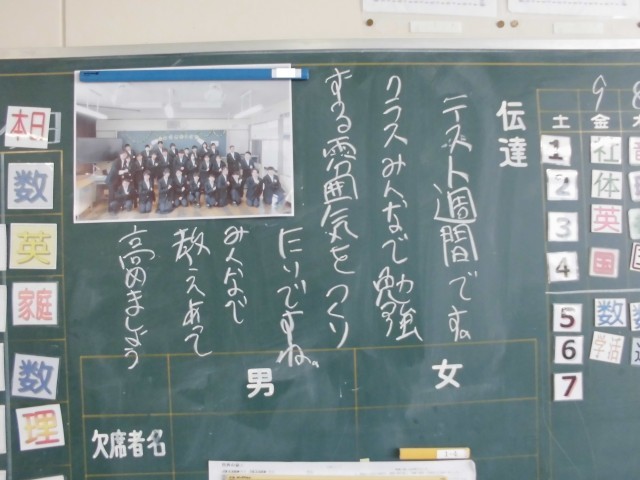 伝達
テスト週間です。
クラスみんなで勉強
する雰囲気をつくり
たいですね。
みんなで
教えあって
高めましょう
女
男
欠席者名
9
土 金
1 社
2 体
3 英
4 国
5 数
6 学活
7
本日
数
英
家庭
数
理